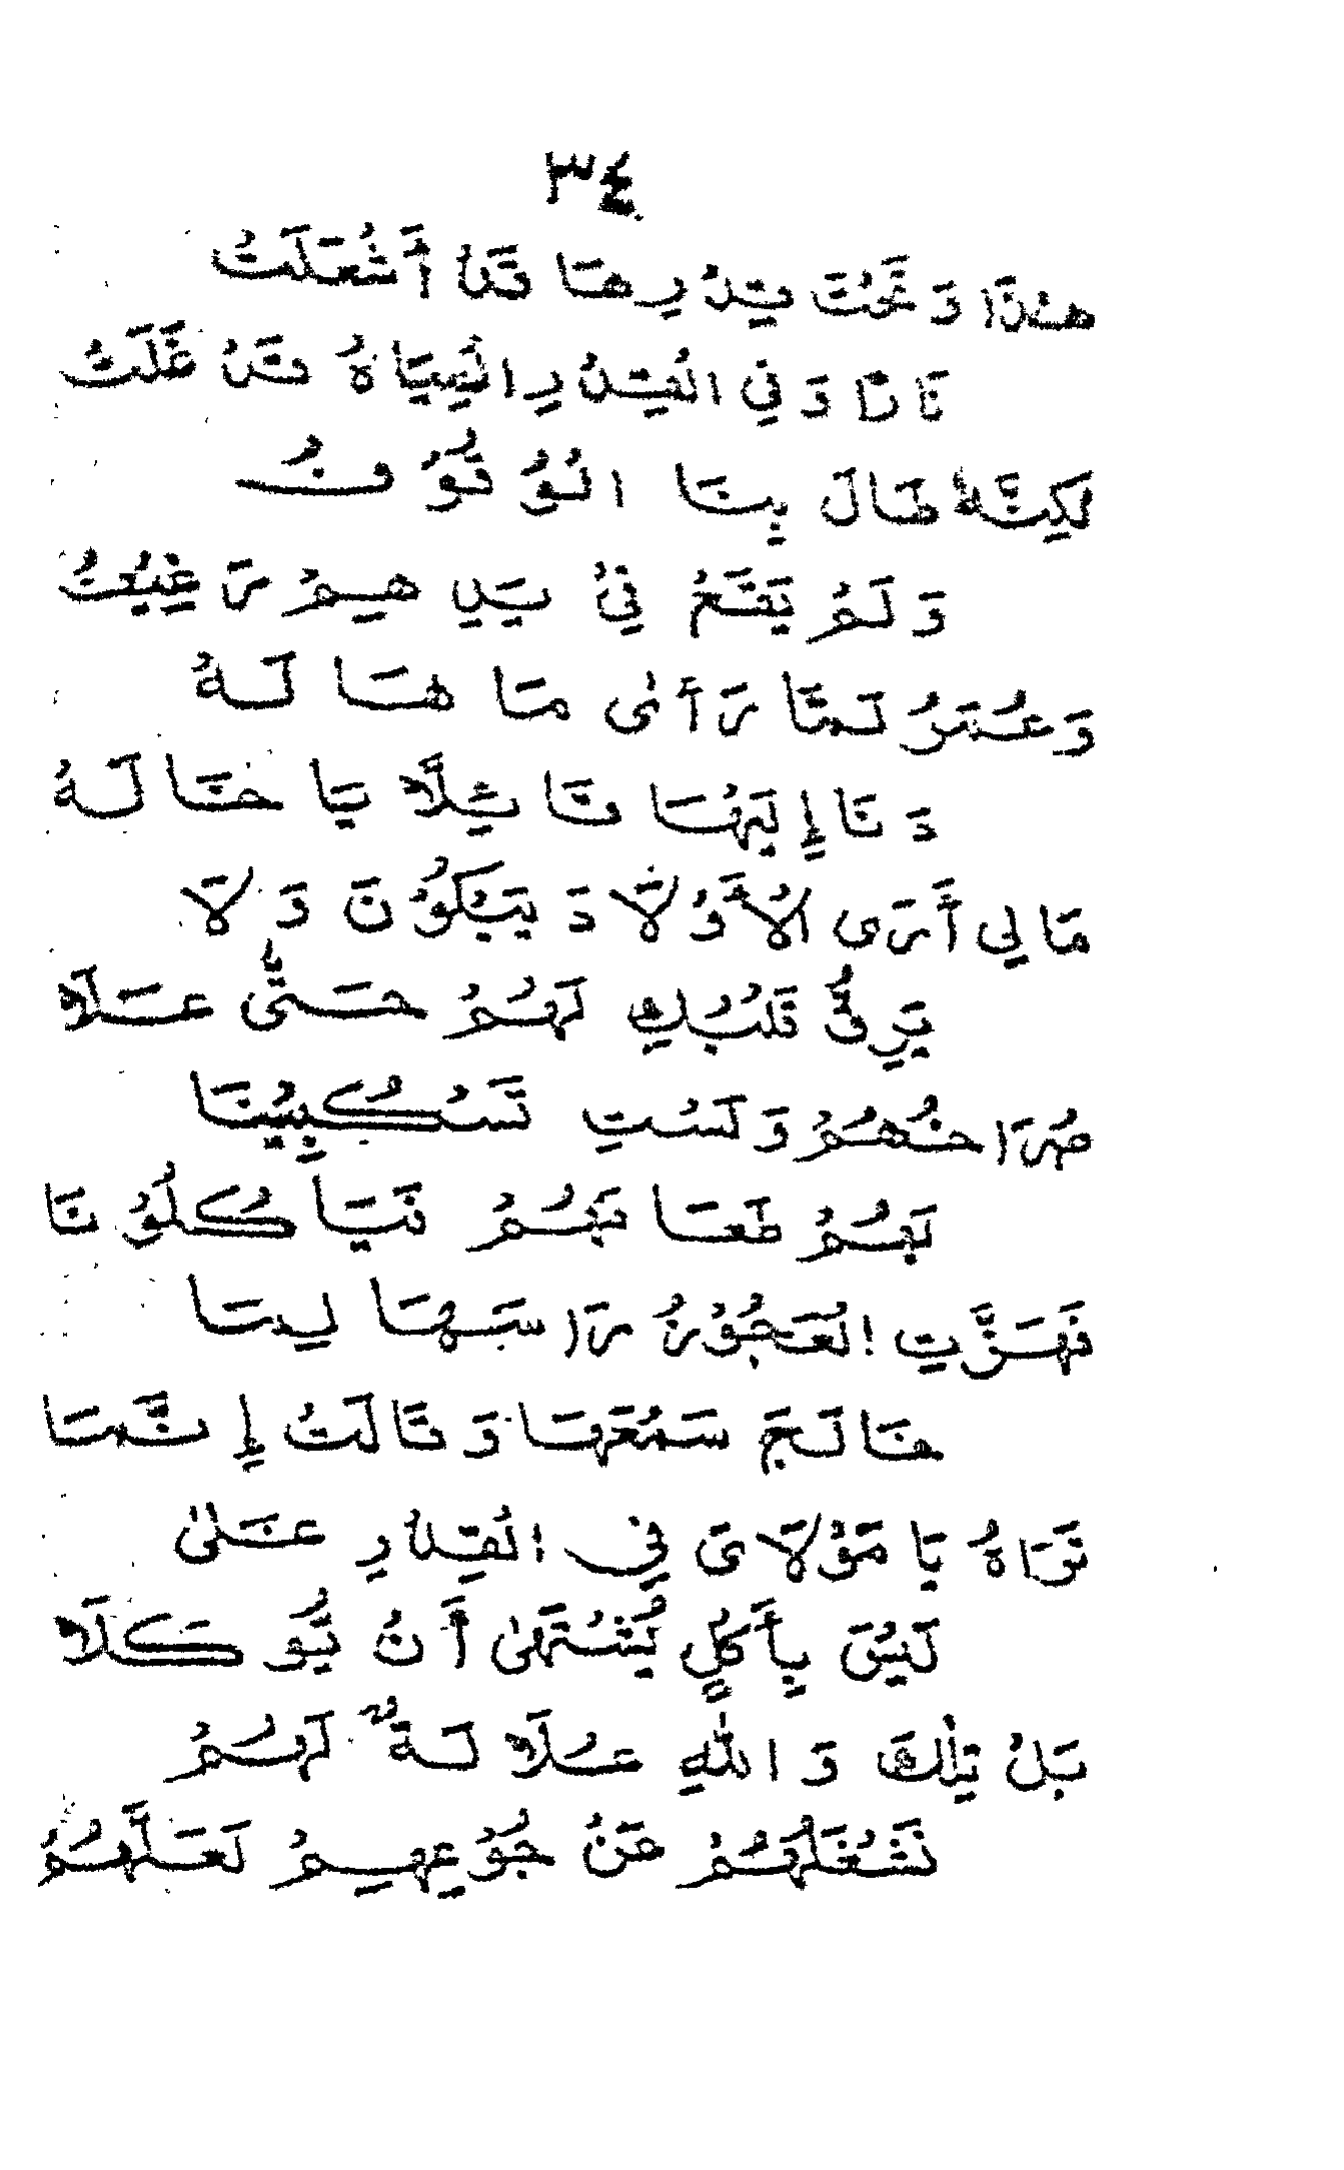 ٣٤
هٰذَا وَتَحْتَ قِدْرِهَا قَدْ أَشْعَلَتْ
نَارًا وَفِي الْقِدْرِ الْمِيَاهُ قَدْ غَلَتْ
لَكِنَّهُ طَالَ بِنَا الْوُقُوْفُ
وَلَمْ يَقَعْ فِيْ يَدِيهِمْ رَغِيْفُ
وَعُمَرُ لَمَّا رَأَىٰ مَا هَالَهُ
دَنَا إِلَيْهَا قَائِلًا يَا خَالَهْ
مَالِي أَرَى الْأَوْلَادَ يَبْكُوْنَ وَلَا
يَرِقُّ قَلْبُكِ لَهُمْ حَتَّى عَلَا
صُرَاخُهُمْ وَلَسْتِ تَسْكُبِيْنَا
لَهُمْ طَعَامَهُمْ فَيَأْكُلُوْنَا
فَهَزَّتِ الْعَجُوْزُ رَاسَهَا لِمَا
خَالَجَ سَمْعَهَا وَقَالَتْ إِنَّمَا
تَرَاهُ يَا مَوْلَايَ فِي الْقِدْرِ غَلَىٰ
لَيْسَ بِأَكْلٍ يُشْتَهَىٰ أَنْ يُّوكَلَا
بَلْ تِلْكَ وَاللّٰهِ عُلَالَةٌ لَهُمْ
تَشْغَلُهُمْ عَنْ جُوْعِهِمْ لَعَلَّهُمْ